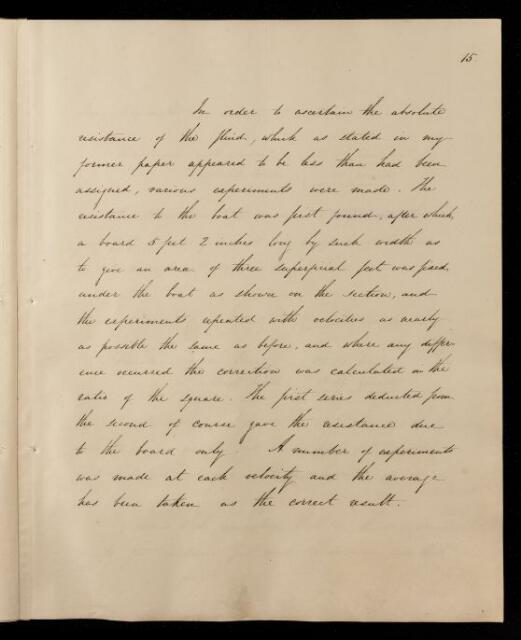 15.
In order to ascertain the absolute
resistance of the fluid, which as stated in my
former paper appeared to be less than had been
assigned, various experiments were made. The
resistance to the boat was first found, after which,
a board 5 feet 2 inches long by such width as
to give an area of three superficial feet was fixed
under the boat as shown on the section, and
the experiments repeated with velocities as nearly
as possible the same as before, and where any differ-
ence occurred the correction was calculated in the
ratio of the square. The first series deducted from
the second of course gave the resistance due
to the board only. A number of experiments
was made at each velocity and the average
has been taken as the correct result.